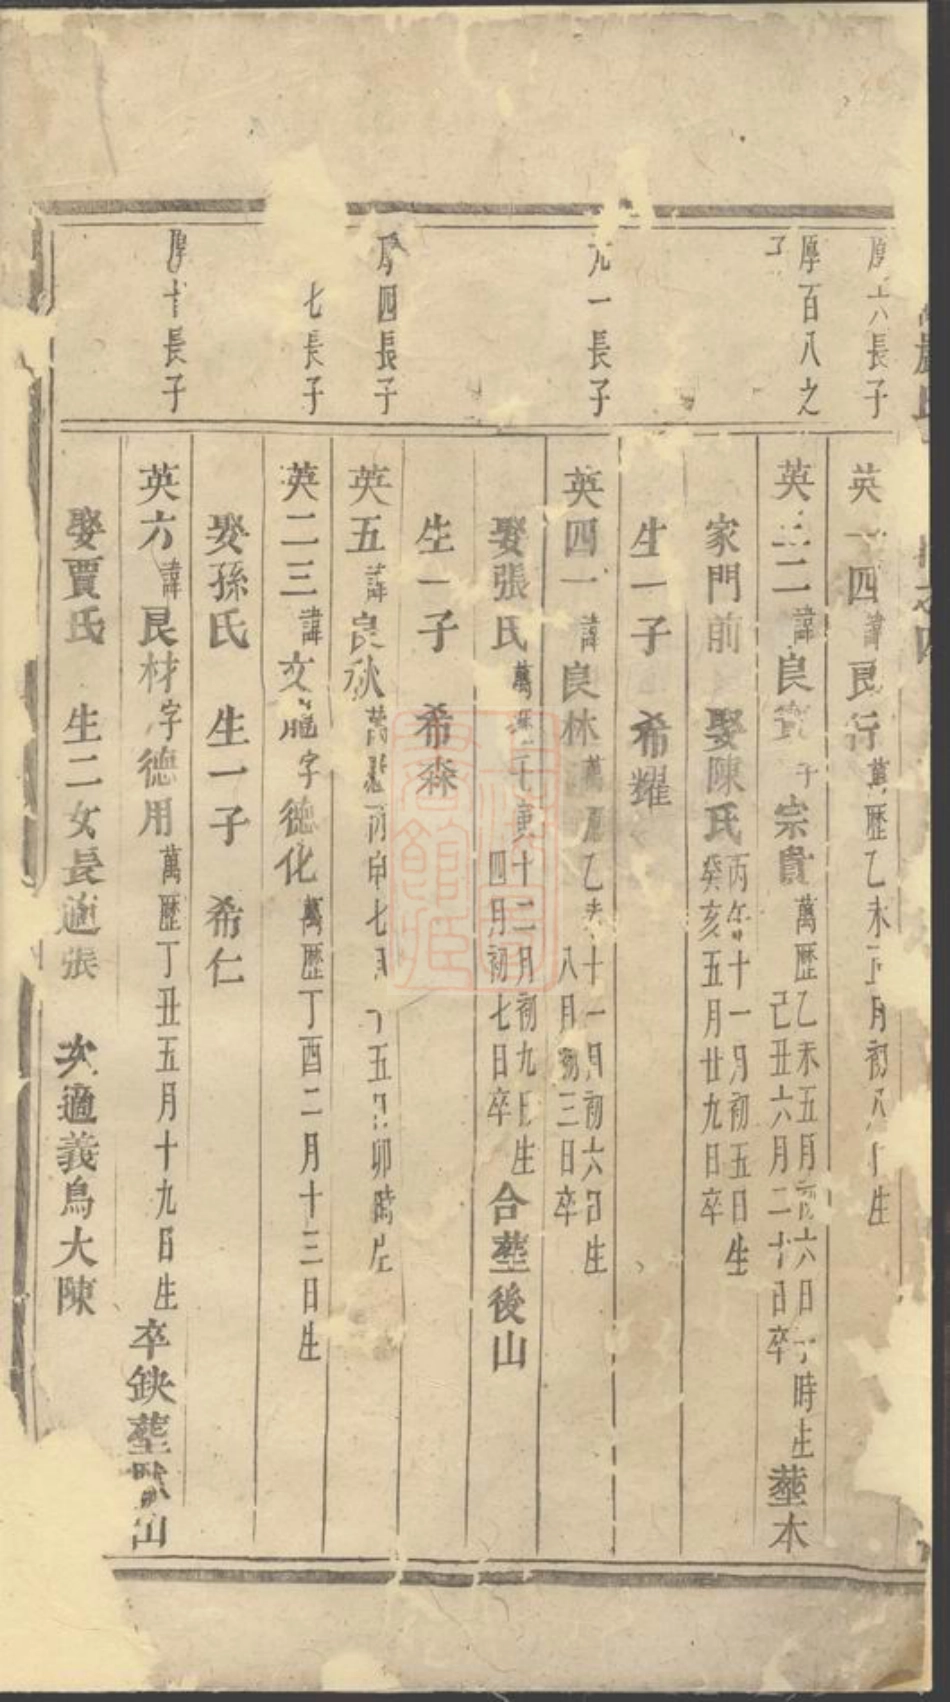 長子
英 四諱良行萬歷乙未正月初八日生
厚百八之
子
英 二諱良 字宗貴萬歷乙未五月初六日子時生
己丑六月二十日卒
塟本
家門前 娶陳氏丙午十一月初五日生
癸亥五月廿九日卒
生一子 希耀
一長子
英四一諱良林萬歷乙未十一月初六日生
八月初三日卒
娶張氏萬歷 庚 十二月初九日生
四月初七日卒
合塟後山
生一子 希森
厚四長子
英五諱良秋萬歷丙申七月十五日卯時生
七長子
英二三諱文 字德化萬歷丁酉二月十三日生
娶孫氏 生一子 希仁
厚十長子
英六諱良材字德用萬歷丁丑五月十九日生卒缺塟 山
娶賈氏 生二女長適張 次適義烏大陳